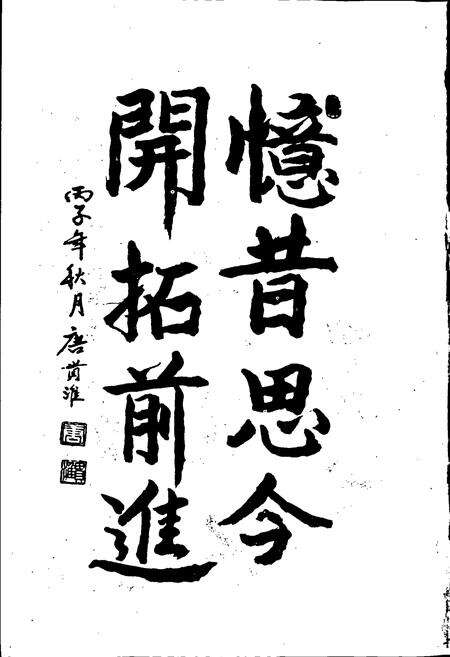 憶昔思今
開拓前進
丙子年秋月唐